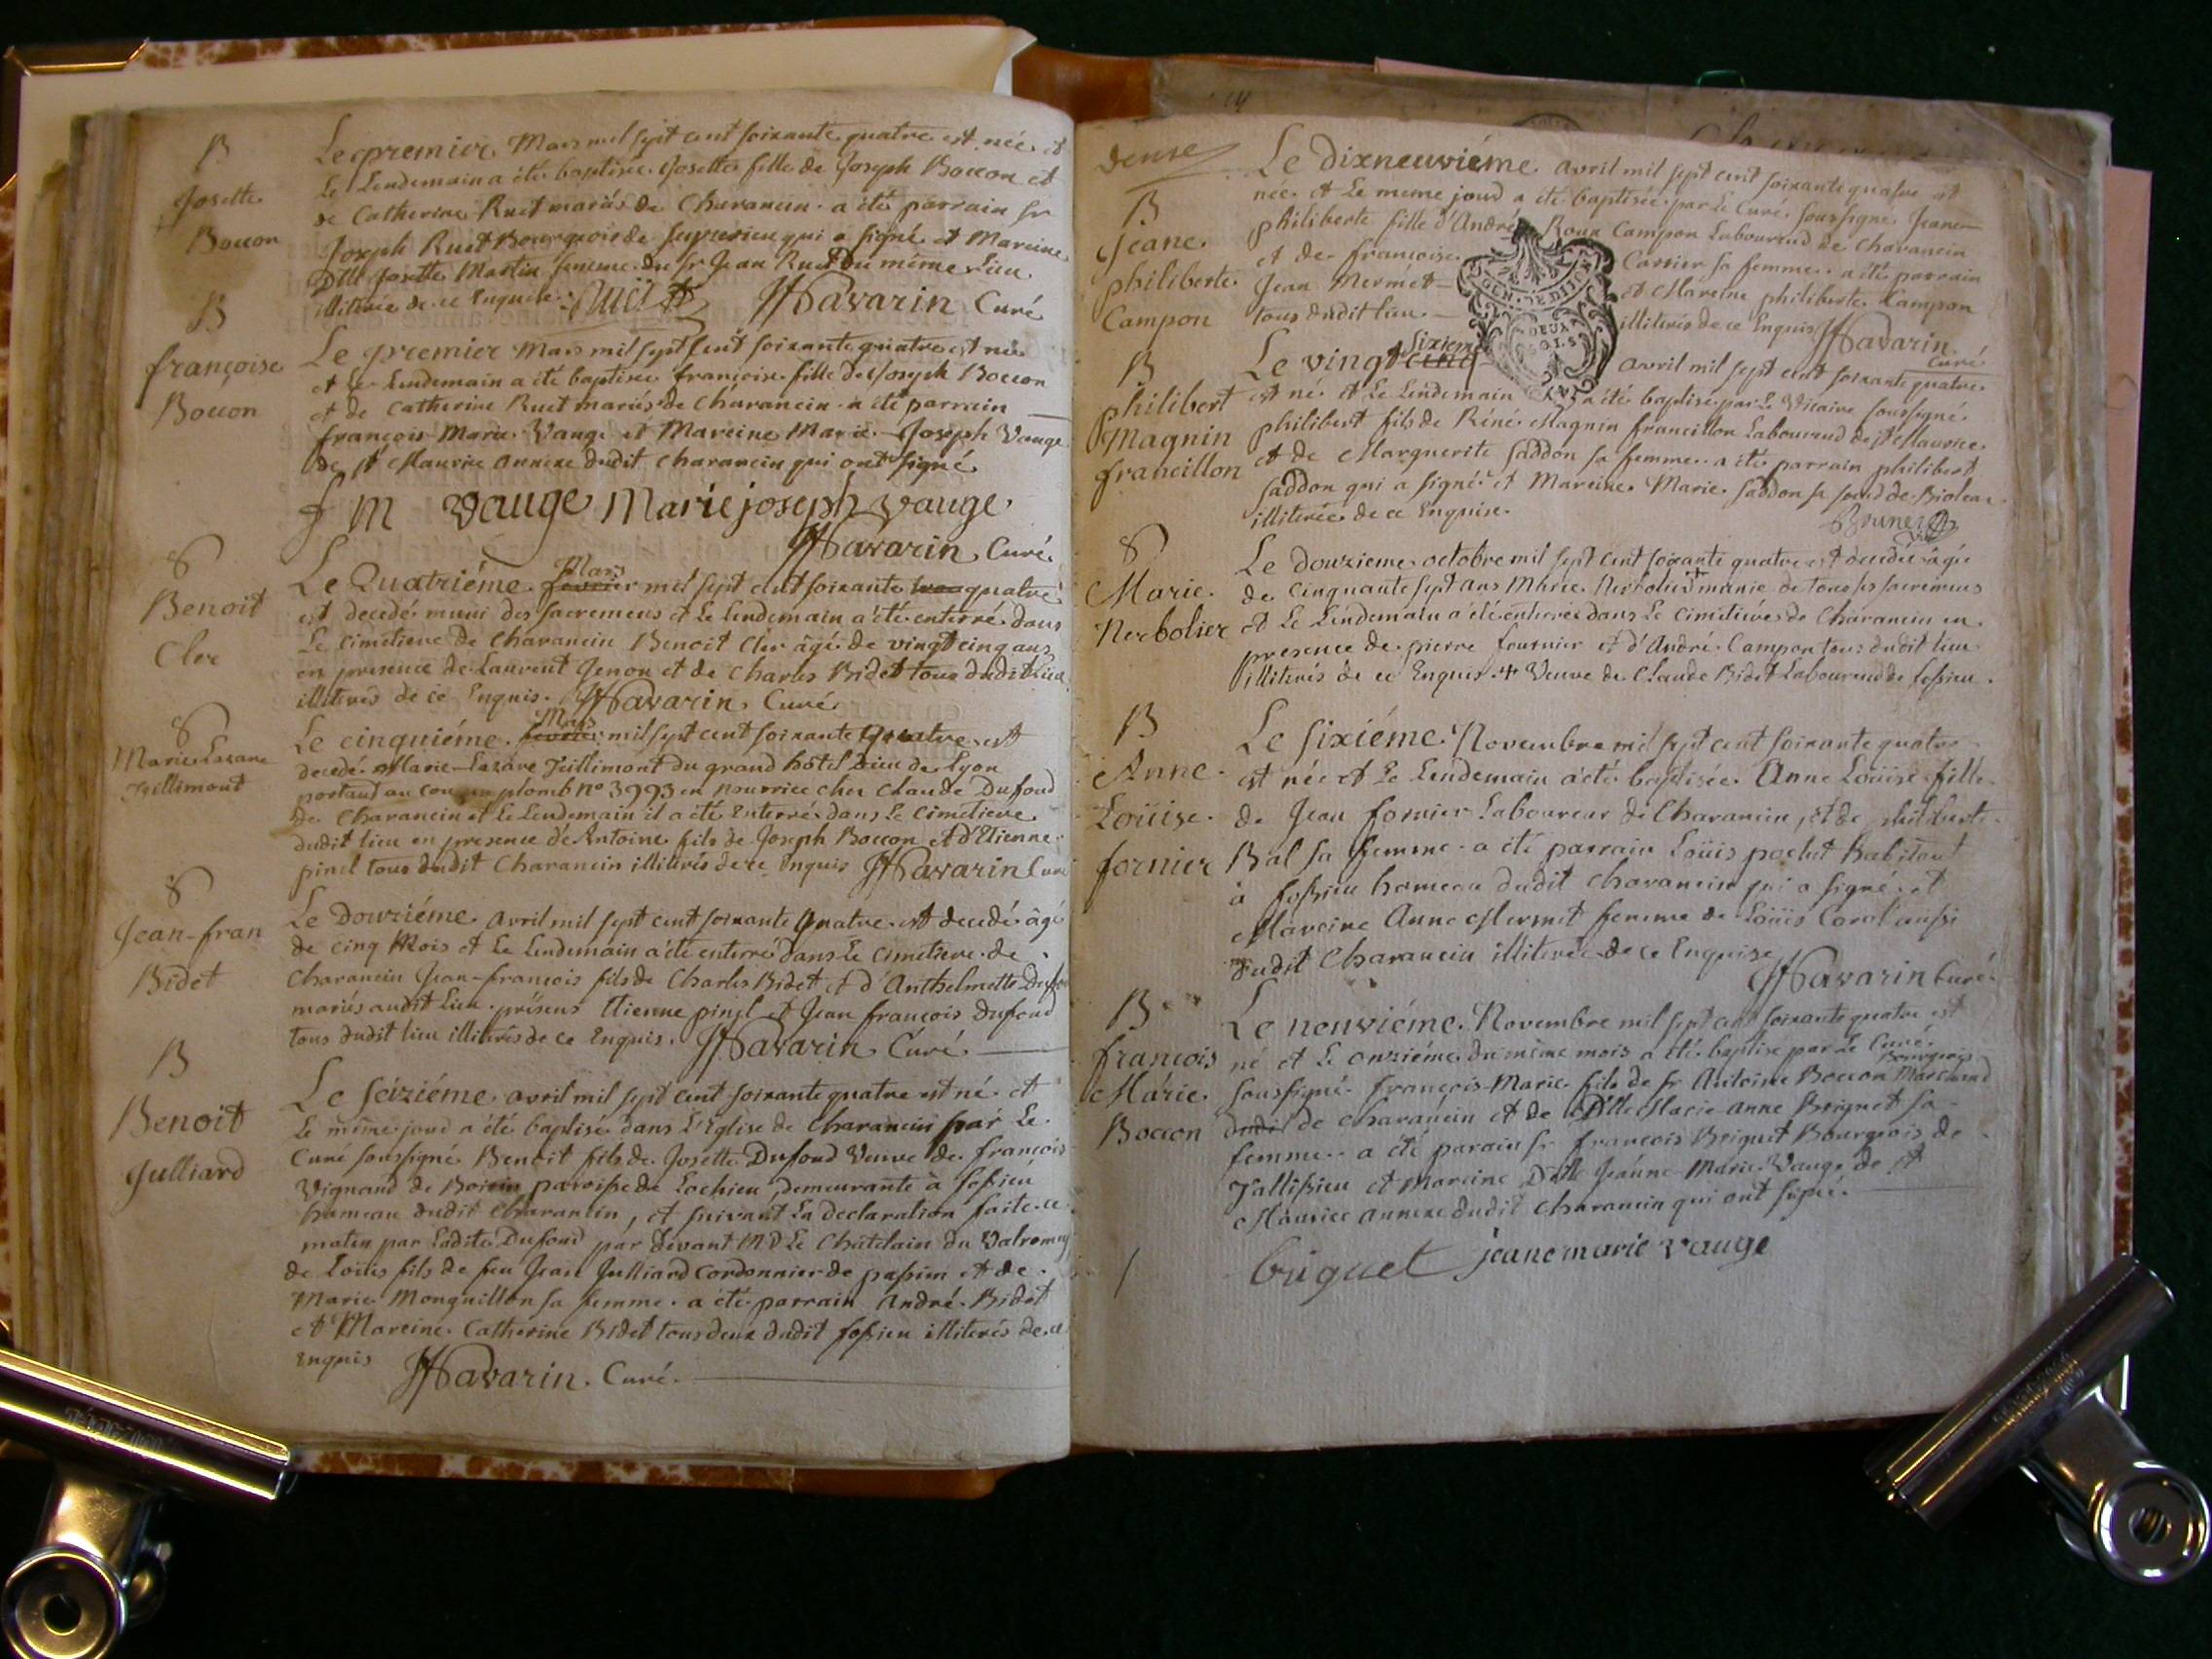 B
Josette
Bocon
Le premier Mars mil sept cent soixante quatre est née et
le Lendemain a été baptisée Josette fille de Joseph Bocon et
de Catherine Ruet mariés de Charancin a été parrain sr
Joseph Ruet Bourgeois de qui a signé et Mareine
Dlle Josette Martin femme du sr Jean Ruet du même Lieu
illiterée de ce Enquise. Ruet JHavarin Curé
B
françoise
Bocon
Le premier Mars mil sept cent soixante quatre est née
et le Lendemain a été baptisée françoise fille de Joseph Bocon
et de Catherine Ruet mariés de Charancin a été parrain
françois Marie Vauge et Mareine Marie-Joseph Vauge
de St Maurice annexe dudit Charancin qui ont signé
f m vauge Marie joseph vauge
JHavarin Curé
8
Benoit
Cler
Mars
Le Quatriéme fevrier mil sept cent soixante quatre
est decedé muni des sacremens et le lendemain a été enterré dans
Le cimetiere de Charancin Benoit Cler âgé de vingt cinq ans
en presence de Laurent Jenon et de Charles Bidet tous dudit lieu
illiterés de ce Enquis. JHavarin Curé
8
Marie Lazare
Teillimont
Mars
Le cinquiéme fevrier mil sept cent soixante quatre est
decedé Marie-Lazare Teillimont du grand hôtel Dieu de Lyon
portant au cou un plomb no 3993 en nourrice chez Claude Dufond
de Charancin et le Lendemain il a été enterré dans le cimetiere
dudit lieu en presence d'Antoine fils de Joseph Bocon et d'Etienne
pinel tous dudit Charancin illiterés de ce Enquis JHavarin Curé
8
Jean-fran
Bidet
Le Douziéme avril mil sept cent soixante quatre est decedé âgé
de cinq Mois et le Lendemain a été enterré dans le cimetiere de
Charancin Jean-françois fils de Charles Bidet et d'Anthelmette
mariés audit Lieu. présens Etienne pinel et Jean françois Dufond
tous dudit lieu illiterés de ce Enquis. JHavarin Curé
B
Benoit
Julliard
Le seiziéme avril mil sept cent soixante quatre est né et
le même jour a été baptisé dans l'Eglise de Charancin par Le
Curé soussigné Benoit fils de Josette Dufond Veuve de françois
Vignand de paroisse de Lochieu demeurante à fossieu
hameau dudit Charancin, et suivant La declaration faite ce
matin par Ladite Dufond par devant Mr Le Chatelain du Valromey
de Louis fils de feu Jean Julliard Cordonnier de passin et de
Marie Monguillon sa femme. a été parrain André Bidet
et Mareine Catherine Bidet tous deux dudit fossieu illiterés de ce
Enquis JHavarin Curé
dense
B
Jeane
philiberte
Campon
Le Dixneuviéme avril mil sept cent soixante quatre est
née et le meme jour a été baptisée par le Curé soussigné Jeane
philiberte fille d'André Roux Campon Laboureur de Charancin
et de françoise Carrier sa femme. a été parrain
Jean Mermet et Mareine philiberte Campon
tous dudit lieu illiterés de ce Enquis JHavarin
Curé
GEN. DE DIJON
DEUX
SOLS
B
philibert
Magnin
francillon
sixieme
Le vingt cinq avril mil sept cent soixante quatre
est né et le Lendemain a été baptisé par le Vicaire soussigné
philibert fils de Réné Magnin francillon Laboureur de St Maurice
et de Marguerite saddon sa femme. a été parrain philibert
saddon qui a signé et Mareine Marie saddon sa soeur de
illiterée de ce Enquise. Brunet
8
Marie
Nerbolier
Le Douzieme octobre mil sept cent soixante quatre est decedée âgée
de cinquante sept ans Marie Nerbolier + munie de tous ses sacremens
et le Lendemain a été enterrée dans le cimetiere de Charancin en
presence de pierre fournier et d'André Campon tous dudit lieu
illiterés de ce Enquis. + Veuve de Claude Bidet Laboureur de fossieu.
B
Anne
Loüise
fornier
Le sixiéme Novembre mil sept cent soixante quatre
est née et Le Lendemain a été baptisée Anne Loüise fille
de Jean fornier Laboureur de Charancin, et de philiberte
Bal sa femme. a été parrain Loüis pochet habitant
à fossieu hameau dudit Charancin qui a signé et
Mareine Anne Mermet femme de Loüis Carol aussi
dudit Charancin illiterée de ce Enquise
JHavarin Curé
B
francois
Marie
Bocon
Le neuviéme Novembre mil sept cent soixante quatre est
né et le onziéme du même mois a été baptisé par Le Curé
Bourgeois
soussigné françois-Marie fils de sr Antoine Bocon Marchand
dudit de Charancin et de Dlle Marie Anne Briguet sa
femme. a été parain sr françois Briguet Bourgeois de
Tallissieu et Mareine Dlle Jeanne-Marie Vauge de St
Maurice annexe dudit Charancin qui ont signé.
briguet jeane marie vauge